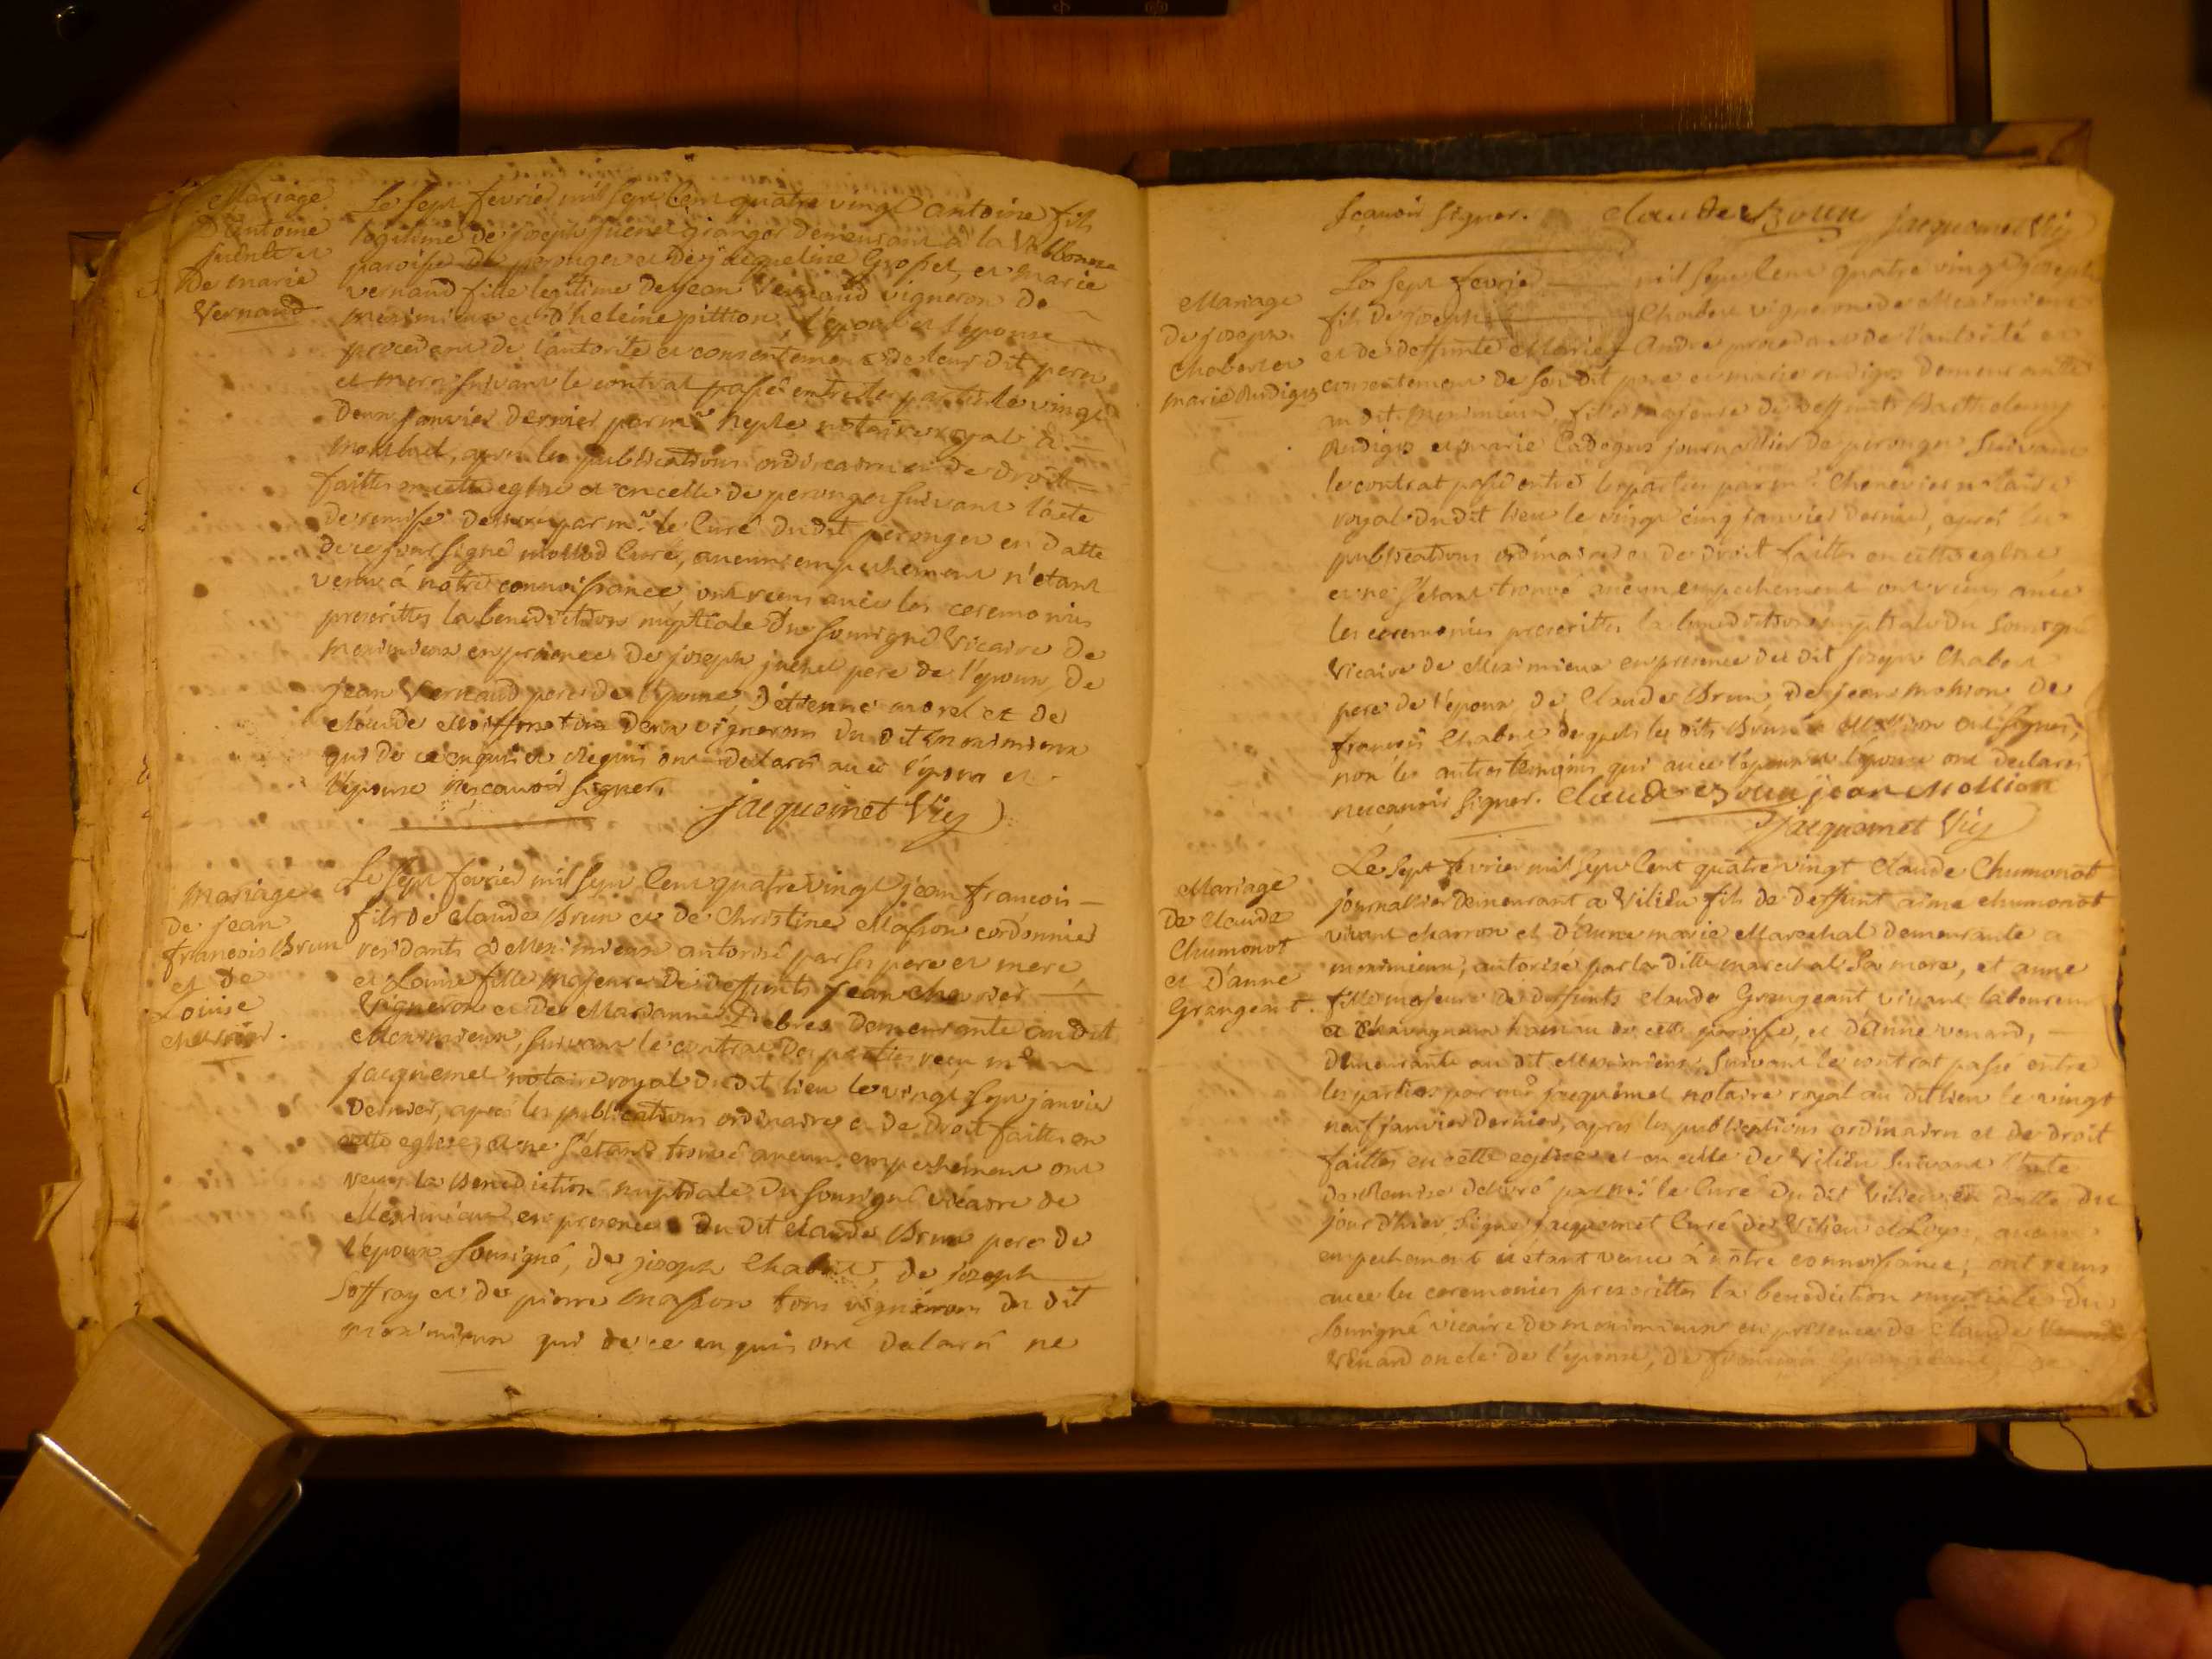 Mariage
D'antoine
juenet et
De marie
Vernand
Le sept fevrier mil sept Cent quatre vingt antoine fils
legitime de joseph juenet granger demeurant a la Valbonne
paroisse de perouges et de jacqueline Grosset, et marie
vernand fille legitime de jean Vernand vigneron de
meximieux et d'heleine pittion, l'epoux et l'epouse
procedent de l'autorité et consentement de leur dit pere
et mere suivant le contrat passé entre les parties le vingt
deux janvier dernier par me notaire royal a
montluel, apres les publications ordinaires et de droit
faittes en cette eglise et en celle de perouges suivant l'acte
de remise par mr. le Curé du dit perouges en datte
de ce jour signé Curé, aucun empechement n'etant
venu á notre connoissance ont recus avec les ceremonies
prescrittes la benediction nuptiale du soussigné Vicaire de
meximieux en presence de joseph juenet pere de l'epoux, de
jean Vernand pere de l'epouse, d'étienne morel et de
claude deux vignerons du dit meximieux
qui de ce enquis et requis ont declaré avec l'epoux et
l'epouse ne scavoir signer.
jacquemet Vic
Mariage
de jean
francois Brun
et de
Louise
chevrier.
Le sept fevrier mil sept Cent quatre vingt jean francois
fils de claude Brun et de Christine Masson cordonnier
residants á Meximieux autorisé par ses pere et mere,
et Louise fille majeure de deffunts jean chevrier
Vigneron et de Marianne Debres demeurante au dit
Meximieux, suivant le contrat des parties recu me
jacquemet notaire royal du dit lieu le vingt sept janvier
dernier, aprés les publications ordinaires et de droit faittes en
cette eglise, et ne s'étant trouvé aucun empechement ont
recus la Benediction nuptiale du soussigné vicaire de
Meximieux en presence du dit claude Brun pere de
l'epoux soussigné, de joseph Chabert, de joseph
Joffray et de pierre masson tous vignerons du dit
meximieux qui de ce enquis ont declaré ne
scavoir signer. claude Brun jacquemet Vic
Mariage
de joseph
Chabert et
marie Rudigos
Le sept fevrier mil sept Cent quatre vingt joseph
fils de joseph Chabert vigneron de Meximieux
et de deffunte Marie Andre procedant de l'autorité et
consentement de son dit pere et marie rudigos demeurante
au dit meximieux, fille majeure de deffunts Barthelemy
Rudigos et marie Cadegros journallier de perouges suivant
le contrat passé entre les parties par me Chenevier notaire
royal du dit lieu le vingt cinq janvier dernier, aprés les
publications ordinaires et de droit faittes en cette eglise
et ne s'étant trouvé aucun empechement ont recus avec
les ceremonies prescrittes la benediction nuptiale du soussigné
Vicaire de Meximieux en presence du dit joseph Chabert
pere de l'epoux de Claude Brun, de jean mollion, de
francois Chabert desquels les dits Brun et Mollion ont signés,
non les autres temoins qui avec l'epoux et l'epouse ont declaré
ne scavoir signer. Claude Brun jean Mollion
jacquemet Vic
Mariage
de Claude
Chumonot
et D'anne
Grangeant.
Le sept fevrier mil sept Cent quatre vingt Claude Chumonot
journallier demeurant a Vilieu fils de deffunt aimé chumonot
vivant charron et d'anne marie Marechal demeurante a
meximieux, autorisé par la ditte marechal sa mere, et anne
fille majeure de deffunts claude Grangeant vivant laboureur
a Chavagneux hameau de cette paroisse, et d'etienne venard,
demeurante au dit Meximieux, suivant le contrat passé entre
les parties par me jacquemet notaire royal au dit lieu le vingt
neuf janvier dernier, apres les publications ordinaires et de droit
faittes en cette eglise et en celle de Vilieu suivant l'acte
de Remise delivré par mr le Curé du dit Vilieu en datte du
jour d'hier signé jacquemet Curé de Vilieu et Loyes, aucun
empechement n'etant venu á nôtre connoissance, ont recus
avec les ceremonies prescrittes la benediction nuptiale du
soussigné vicaire de meximieux en presence de claude
Venard oncle de l'epouse, de